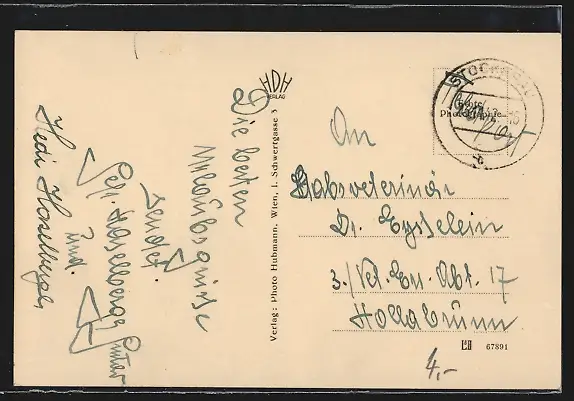 Die besten
Urlaubsgrüße
sendet.
Gefr. Haselberger
und.
Hedi Haselberger
HDH
VERLAG
Verlag: Photo Hubmann, Wien, I. Schwertgasse 3
STOCKERAU
Echte
Photographie
An
Stabsveterinär
Dr. Eysselein
3./Vet. Ers. Abt. 17
Hollabrunn
67891
4,-